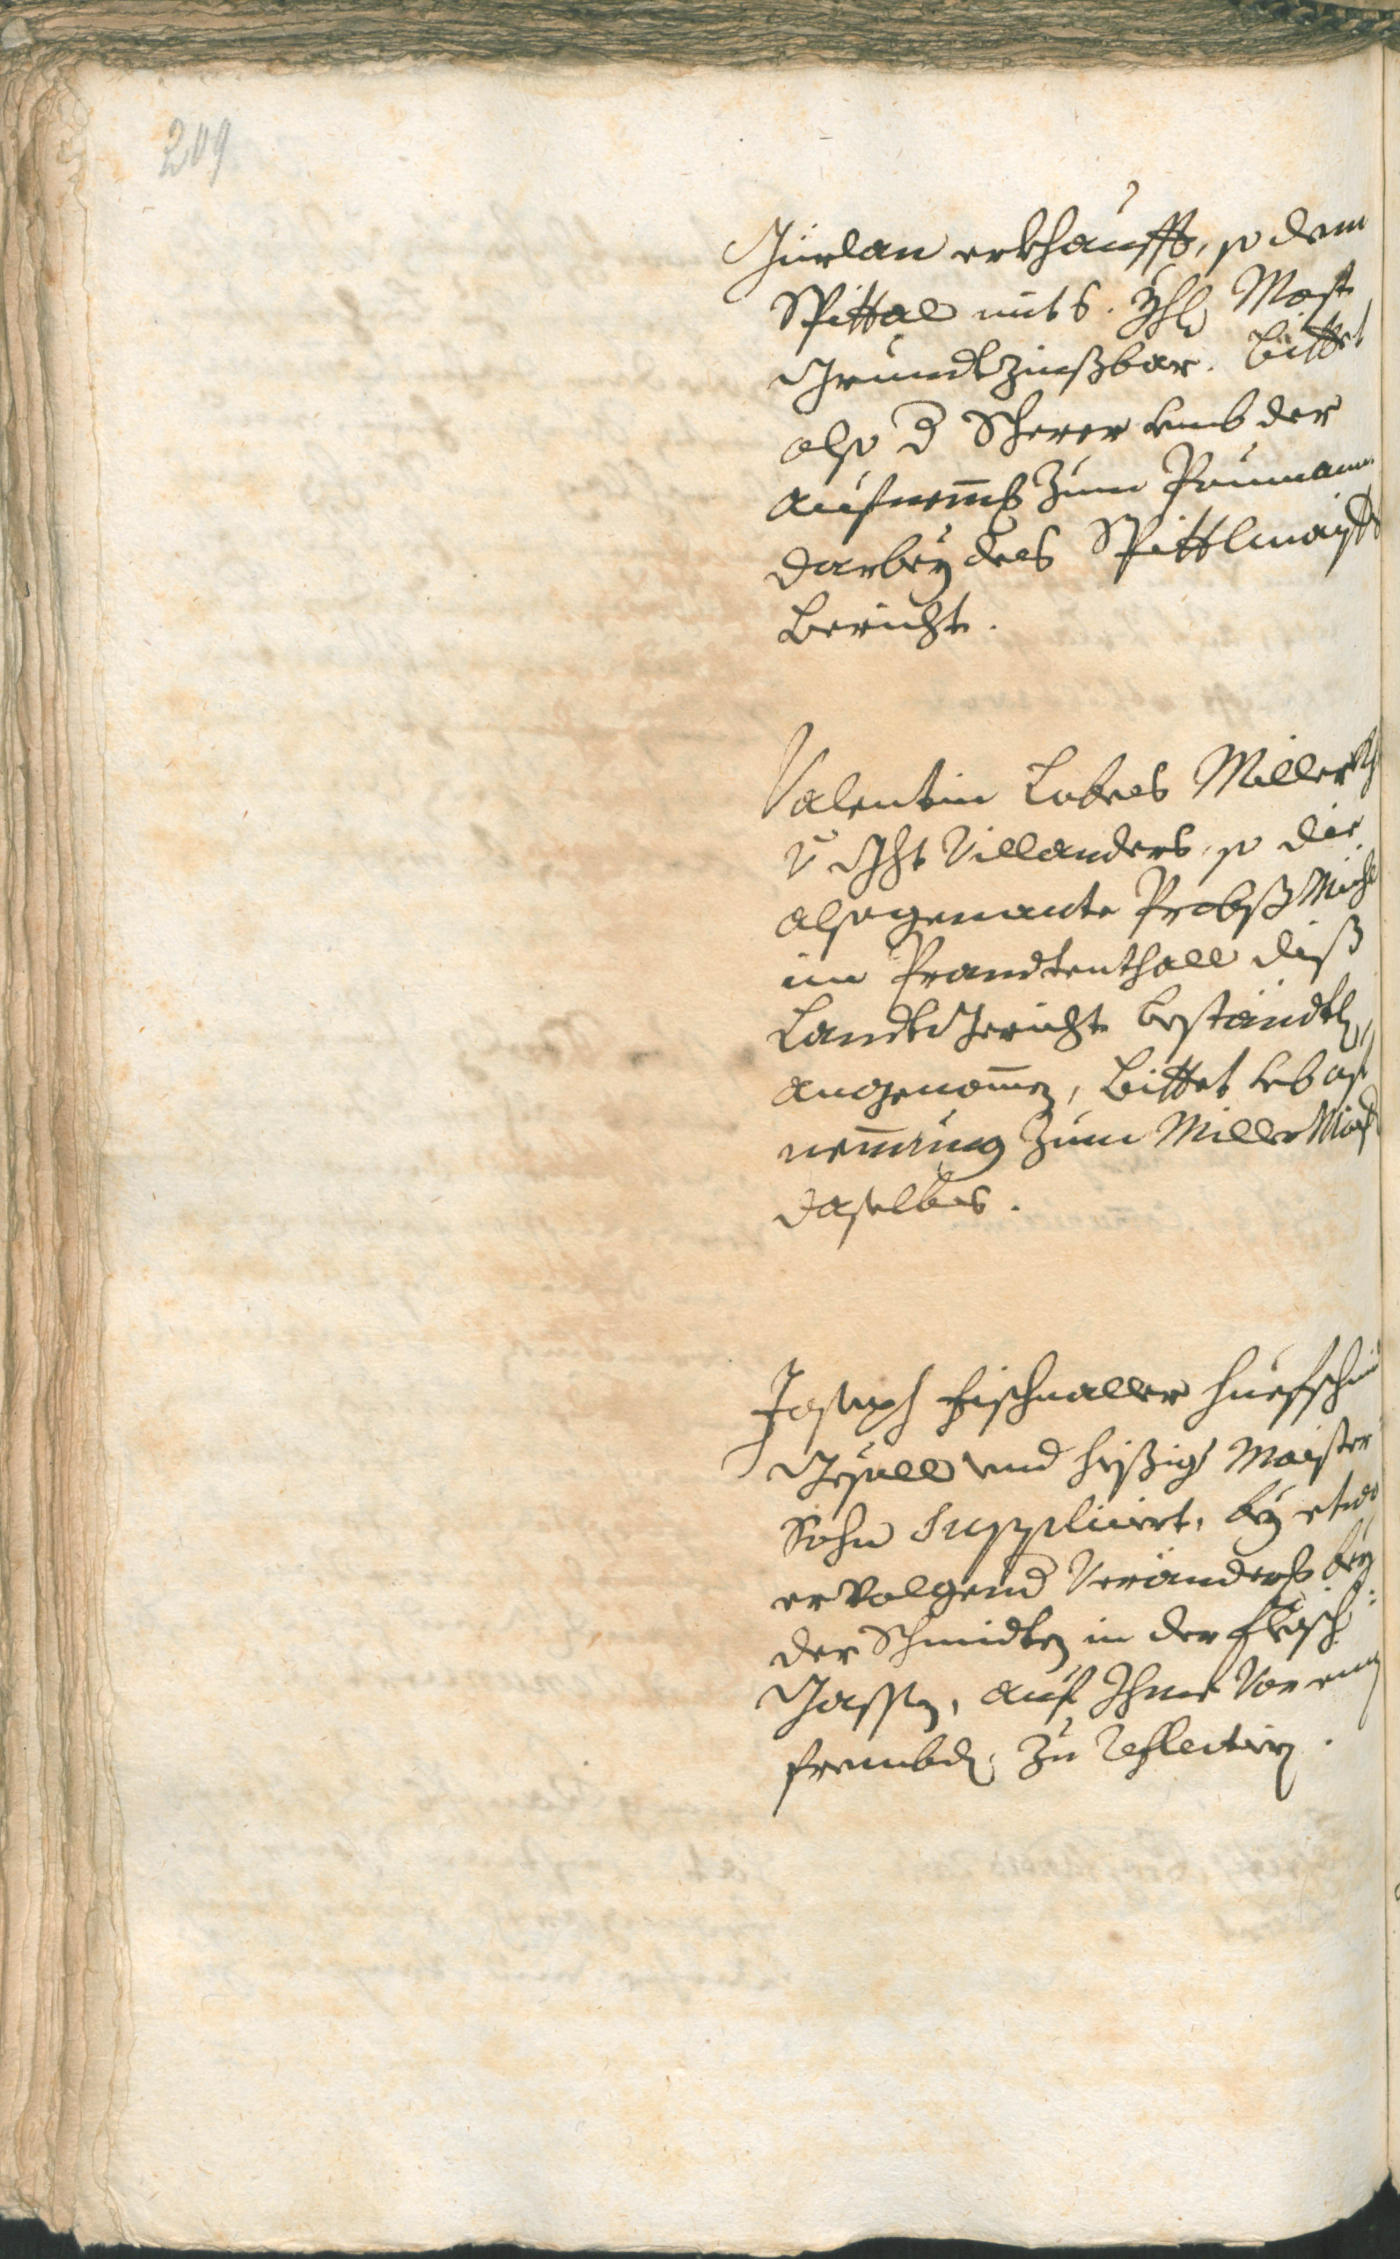 209
Gürlan erkhaufft, so dem
Spittal mit 6. Yhl Most
Grundtzinßbar. bittet
also d Scherer umb der
aufnemb zum Paumann
darbey des Spittlmaist
Bericht.
Valentin Miller
v Ght Villanders, so die
alsogenante Probst Mihl
im Prandtenthall diß
Landtgericht beständtl
angenomen, bittet umb auf
nemung zum Miller Maist
daselbs.
Joseph Fischnaller Huefschmid
Gesell und hießig Maister
Sohn Suppliciert, bey etwo
ervolgend Veränder bey
der Schmidten in der Fleisch
Gassen, auf Ihme vor einen
frembden zu reflectirn.